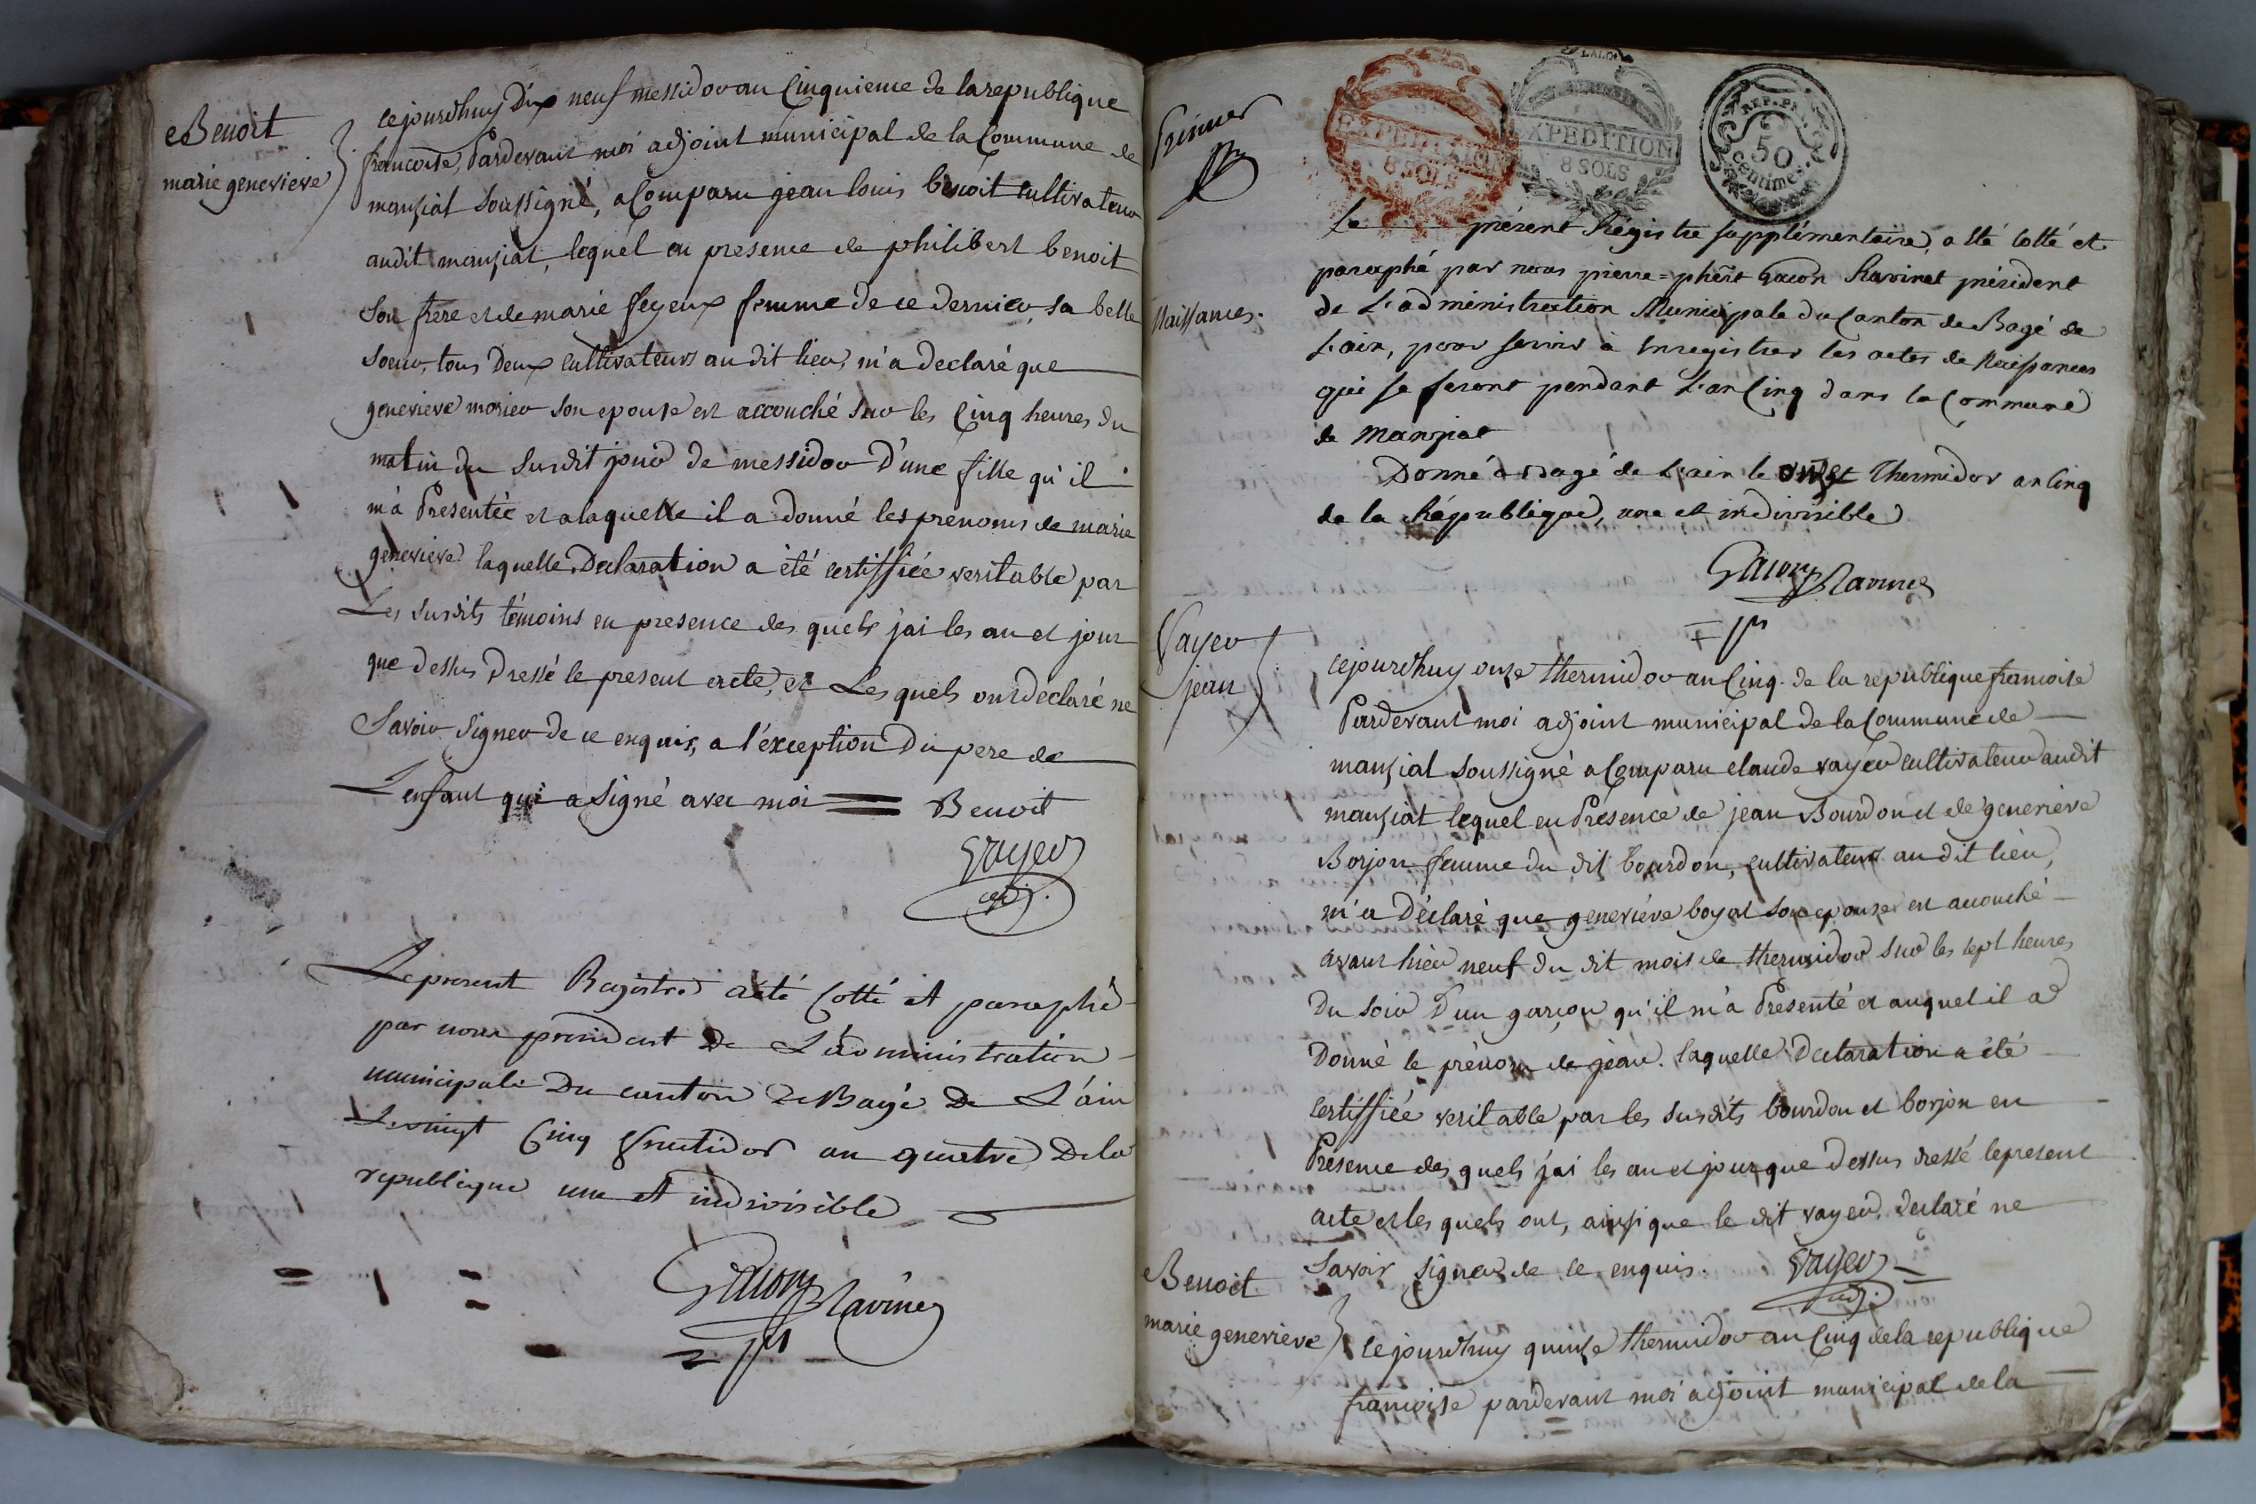 Benoit
marie genevieve
cejourdhuy Dix neuf messidor an Cinquieme de la republique
francoise, Pardevant moi adjoint municipal de la Commune de
manziat soussigné, a Comparu jean louis benoit cultivateur
audit manziat, lequel en presence de philibert benoit
son frere et de marie feyeux femme de ce dernier, sa belle
soeur, tous Deux cultivateurs au dit lieu, m'a declaré que
genevieve morier son epouse est accouché sur les Cinq heures du
matin du susdit jour de messidor D'une fille qu'il
m'a Presentée et a laquelle il a donné les prenoms de marie
genevieve laquelle Declaration a été certiffiée veritable par
Les susdits témoins en presence des quels j'ai les an et jour
que dessus Dressé le present acte, et Les quels ont declaré ne
Savoir signer de ce enquis, a l'éxception Du pere de
L'enfant qui a signé avec moi Benoit
Vayer
adj.
Le present Registre a été Cotté et paraphé
par nous president de L'administration
municipale Du canton de Bagé De L'ain
Le vingt Cinq fructidor an quatre De la
republique une et indivisible
Gacon Ravinet
pt
LA LOI
EXPEDITION
8 SOLS
EXPEDITION
8 SOLS
REP. FR.
50
centimes
Naissances.
Le présent Régistre supplémentaire, a été cotté et
paraphé par nous pierre=phert Gacon Ravinet président
de L'administration Municipale du Canton de Bagé de
L'ain, pour servir à enregistrer les actes de Naissances
qui se feront pendant L'an Cinq dans la Commune
de Manziat
Donné à Bagé de L'ain le onze Thermidor an Cinq
de la République, une et indivisible
Gacon Ravinet
pt
Vayer
jean
cejourdhuy onze thermidor an Cinq de la republique francoise
Pardevant moi adjoint municipal de la Commune de
manziat soussigné a Comparu claude vayer cultivateur audit
manziat lequel en Présence de jean Bourdon et de genevieve
Borjon femme du dit bourdon, cultivateurs au dit lieu,
m'a Déclaré que geneviéve boyat son epouse est accouché
avant hier neuf du dit mois de thermidor sur les sept heures
Du soir D'un garçon qu'il m'a Presenté et auquel il a
Donné le prénom de jean. laquelle Declaration a été
certiffiée veritable par les susdits bourdon et borjon en
Presence des quels j'ai les an et jour que dessus dressé le present
acte et les quels ont, ainsi que le dit vayer, declaré ne
Savoir signer de ce enquis. Vayer
adj.
Benoit
marie genevieve
cejourdhuy quinze thermidor an Cinq de la republique
francoise pardevant moi adjoint municipal de la